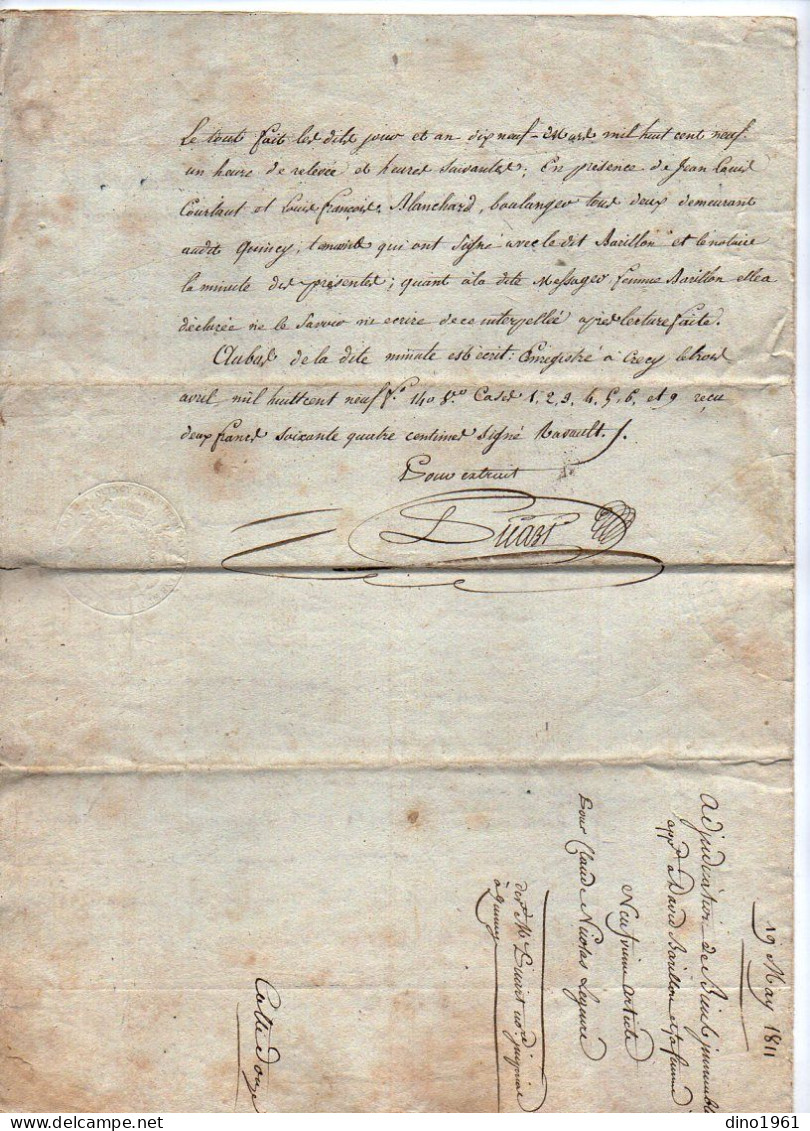 Le tout fait les dits jour et an dix neuf Mars mil huit cent neuf
un heure de relevée et heures suivantes; En présence de Jean Louis
Courtaut et Louis françois Blanchard, boulanger tous deux demeurant
audit Quincy, temoins qui ont signé avec le dit Barillon et le notaire
la minute des présentes; quant à la dite Messager femme Barillon elle a
déclarée ne le savoir ni ecrire de ce interpellée apres lecture faite.
Au bas de la dite minute est écrit: Enregistré à Crecy le trois
avril mil huit cent neuf fo. 140 Vo. Cases 1, 2, 3, 4, 5, 6, et 9 reçu
deux francs soixante quatre centimes signé Ravault.
Pour extrait
Picart
19 May 1811
Adjudication de Biens immeubles
appt. à David Barillon et sa femme
Neuvieme article
Pour Claude Nicolas
devt. Me Picart no.re
à Quincy
Cotte douze
dino1961